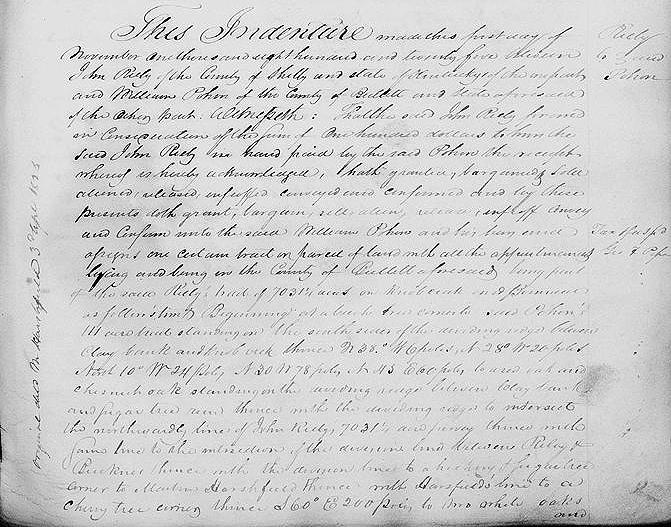 This Indenture made this first day of
November one thousand eight hundred and twenty five between
John Riely of the County of Shelby and state of Kentucky of the one part
and William Pohon of the County of Bullitt and State aforesaid
of the other part: Witnesseth: That the said John Riely for and
in Consideration of the sum of One hundred dollars to him the
said John Riely in hand paid by the said Pohon the receipt
whereof is hereby acknowledged, hath granted, bargained, & sold
aliened, released, enfeoffed conveyed and confirmed and by these
presents doth grant, bargain, sell, alien, release, enfeoff convey
and Confirm unto the said William Pohon and his heirs and
assigns one certain tract or parcel of land with all the appurtenances
lying and being in the County of Bullitt aforesaid,
of the said Riely's tract of 7031¼ acres on Knob creek and
as follows to wit, Beginning at a beech tree corner to said Pohon's
111 acre tract standing on the south side of the dividing ridge between
Clay bank and Knob creek thence N 38° W 6 poles, N 28° W 20 poles
North 10° W 24 poles, N 30 W 78 poles, N 43 E 60 poles to a red oak and
chesnut oak standing on the dividing ridge between Clay bank
and sugar tree run thence with the dividing ridge to intersect
the northwardly line of John Riely, 7031¼ acre survey thence with
same line to the intersection of the division line between Riely &
Buckner thence with the division line to a hickory & sugar tree
corner to Martin Harshfield thence with Harsfields line to a
Cherry tree corner, thence S 60° E 200 poles to two white oaks
and
Riely
to deed
Pohon
Tax &